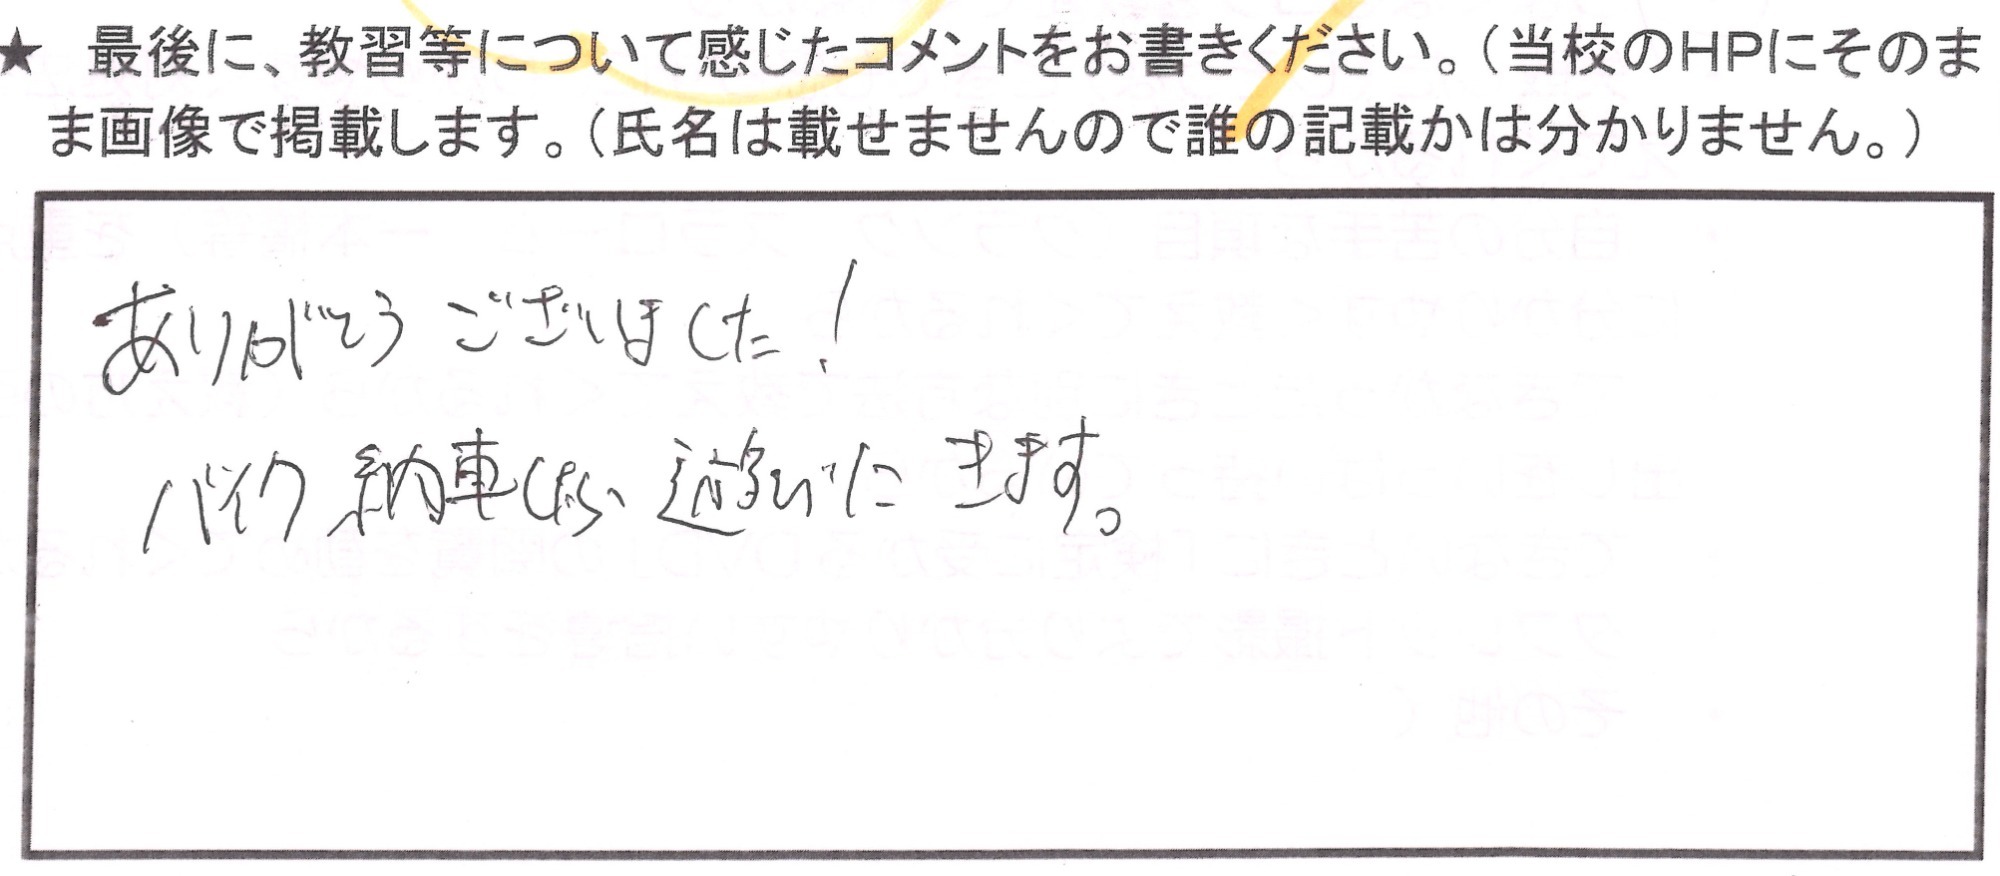 ★ 最後に、教習等について感じたコメントをお書きください。(当校のHPにそのま
ま画像で掲載します。(氏名は載せませんので誰の記載かは分かりません。)
ありがとうございました!
バイク納車したら遊びにきます。